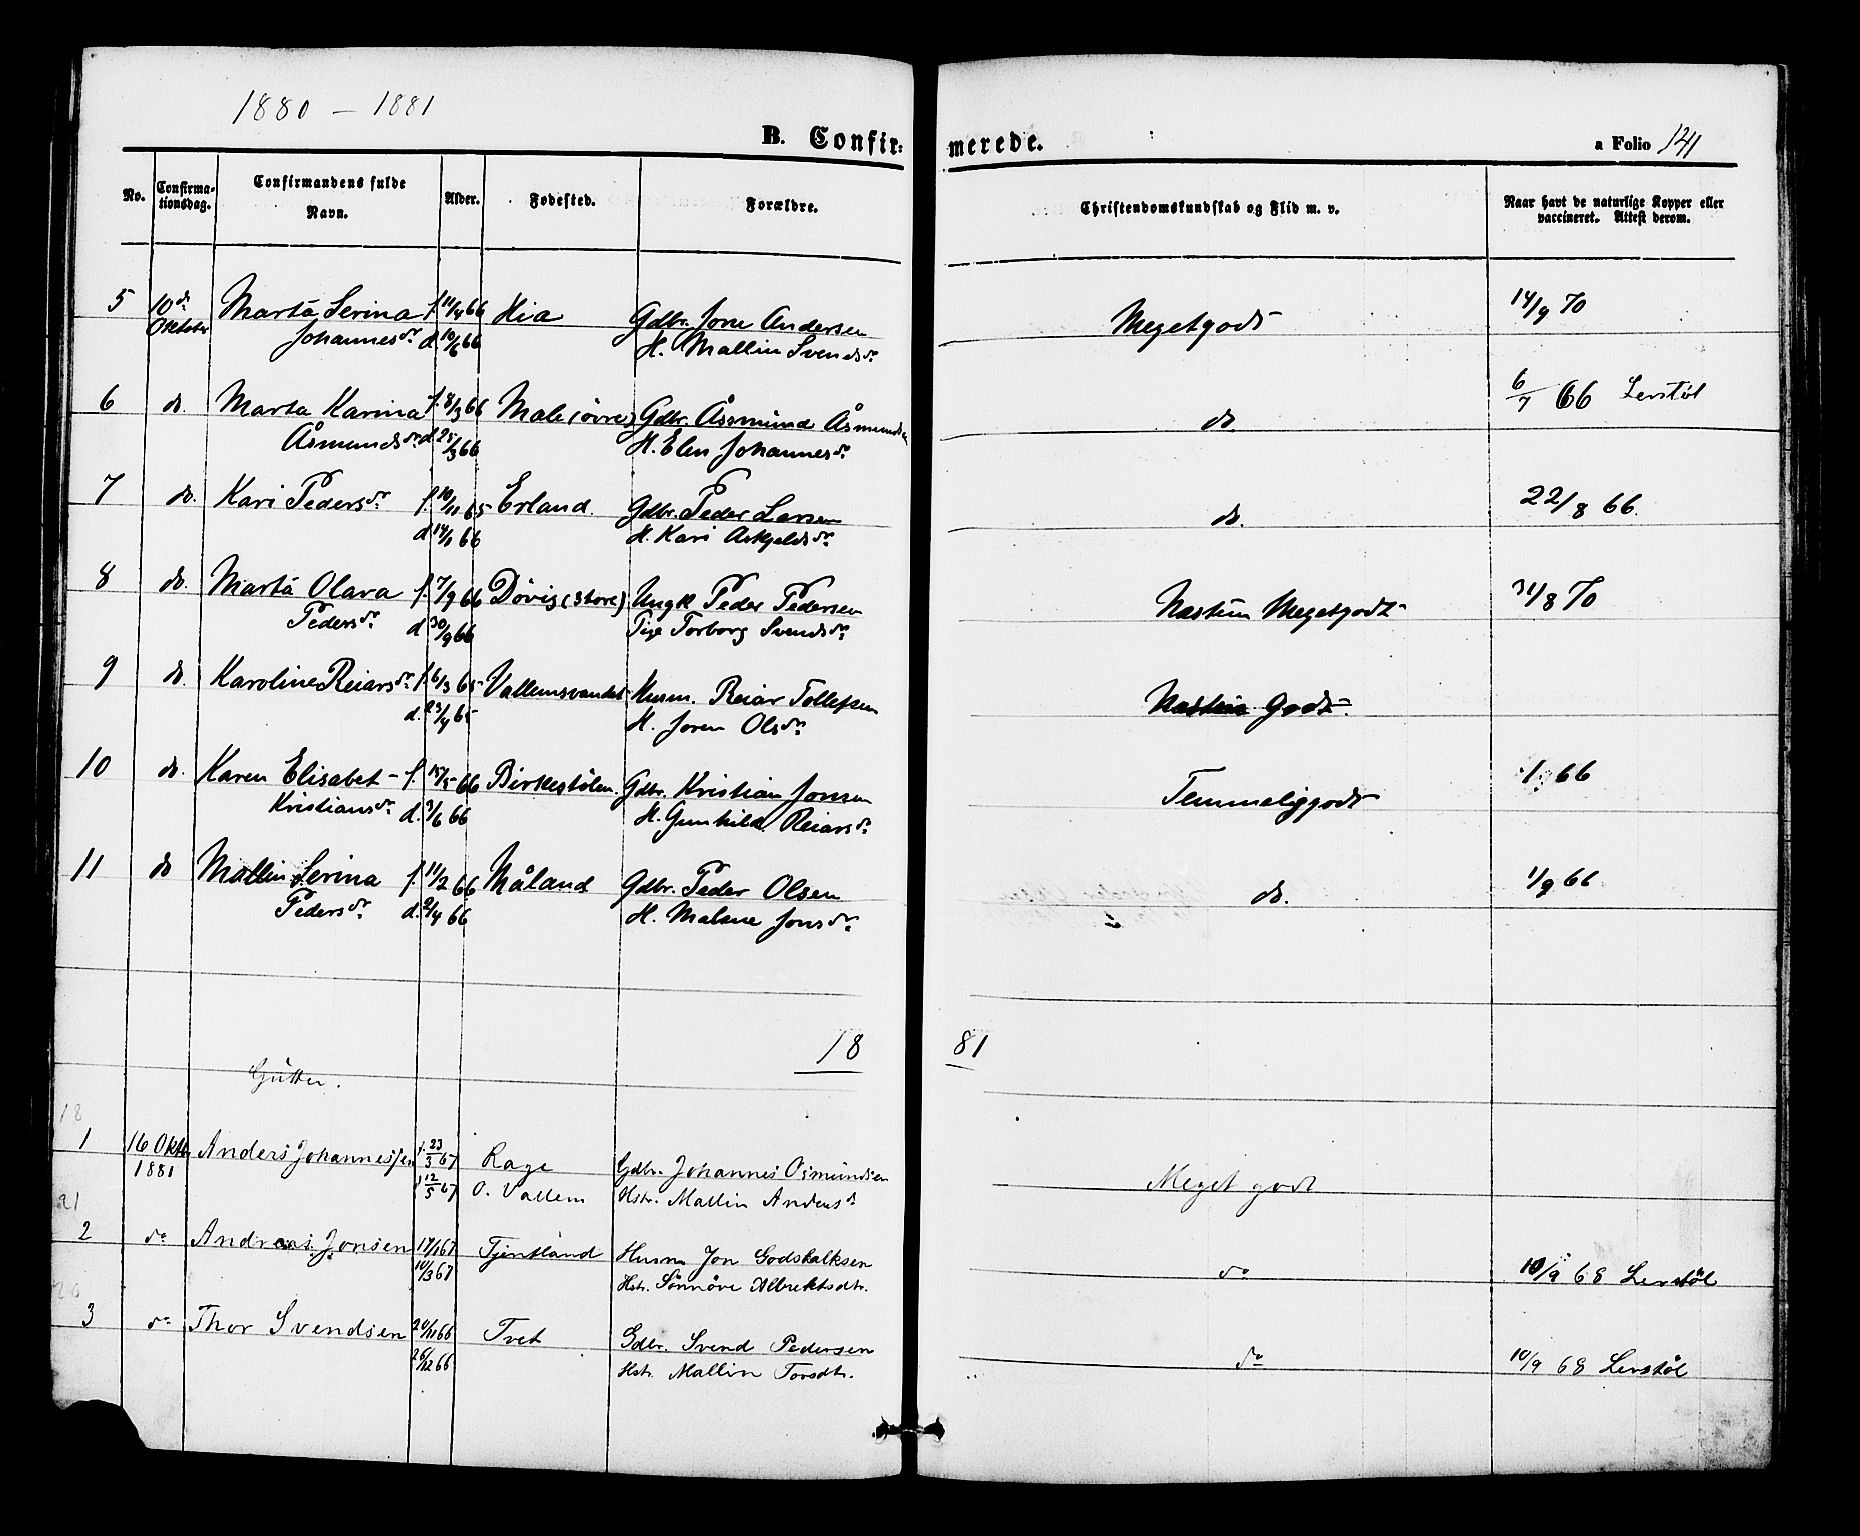 1880 – 1881
B. Confir= merede. a Folio 141
No. Confirma-tionsdag. Confirmandens fulde Navn. Alder. Fødested. Forældre. Christendomskundskab og Flid m. v. Naar havt de naturlige Kopper eller vaccineret. Attest derom.
5 10de Marta Serina f. 11/4 66 Hia Gdbr. Jone Andersen Megetgodt 14/9 70
Oktober Johannesdr d. 10/6 66 H. Mallin Svendsdr
6 do. Marta Karina f. 8/3 66 Male (övre) Gdbr. Åssmund Åsmundsen do. 6/7 66 Lerstöl
Åsmundsdr d. 25/3 66 H. Elen Johannesdr
7 do. Kari Pedersdr f. 10/11 65 Erland. Gdbr. Peder Larsen do. 22/8 66.
d. 14/1 66 H. Kari Askjeldsdr
8 do. Marta Olava f. 7/9 66 Døvig (store) Ungk Peder Pedersen Næsten Megetgodt 31/8 70
Pedersdr d. 30/9 66 Pige Torborg Svendsdr
9 do. Karoline Reiarsdr f. 6/3 65 Vallemsvandet Husm. Reiar Tollefsen Næsten Godt.
d. 23/4 65 H. Joren Olsdr
10 do. Karen Elisabet – f. 15/5 66 Birkestölen Gdbr. Kristian Jonsen Temmeliggodt 66
Kristiansdr d. 3/6 66 H. Gunhild Reiarsdr
11 do Mallin Serina f. 11/2 66 Måland Gdbr. Peder Olsen do. 1/9 66
Pedersdr d. 2/4 66 H. Malene Jonsdr
18 81
Gutter.
18
1 16 Oktb Anders Johannessen f. 23/3 67 Rage Gdbr. Johannes Osmundsen Meget godt
1881 12/5 67 O. Vallem Hstr. Mallin Andersdr
21
2 do Andreas Jonsen 17/1 67 Tjentland Husm Jon Godskalksen do 10/9 68 Lerstöl
10/3 67 Hstr. Sönnöve Albrektsdtr.
20
3 do Thor Svendsen 20/11 66 Tvet Gdbr. Svend Pedersen do 10/9 68 Lerstöl
26/12 66 Hstr. Mallin Torsdtr.